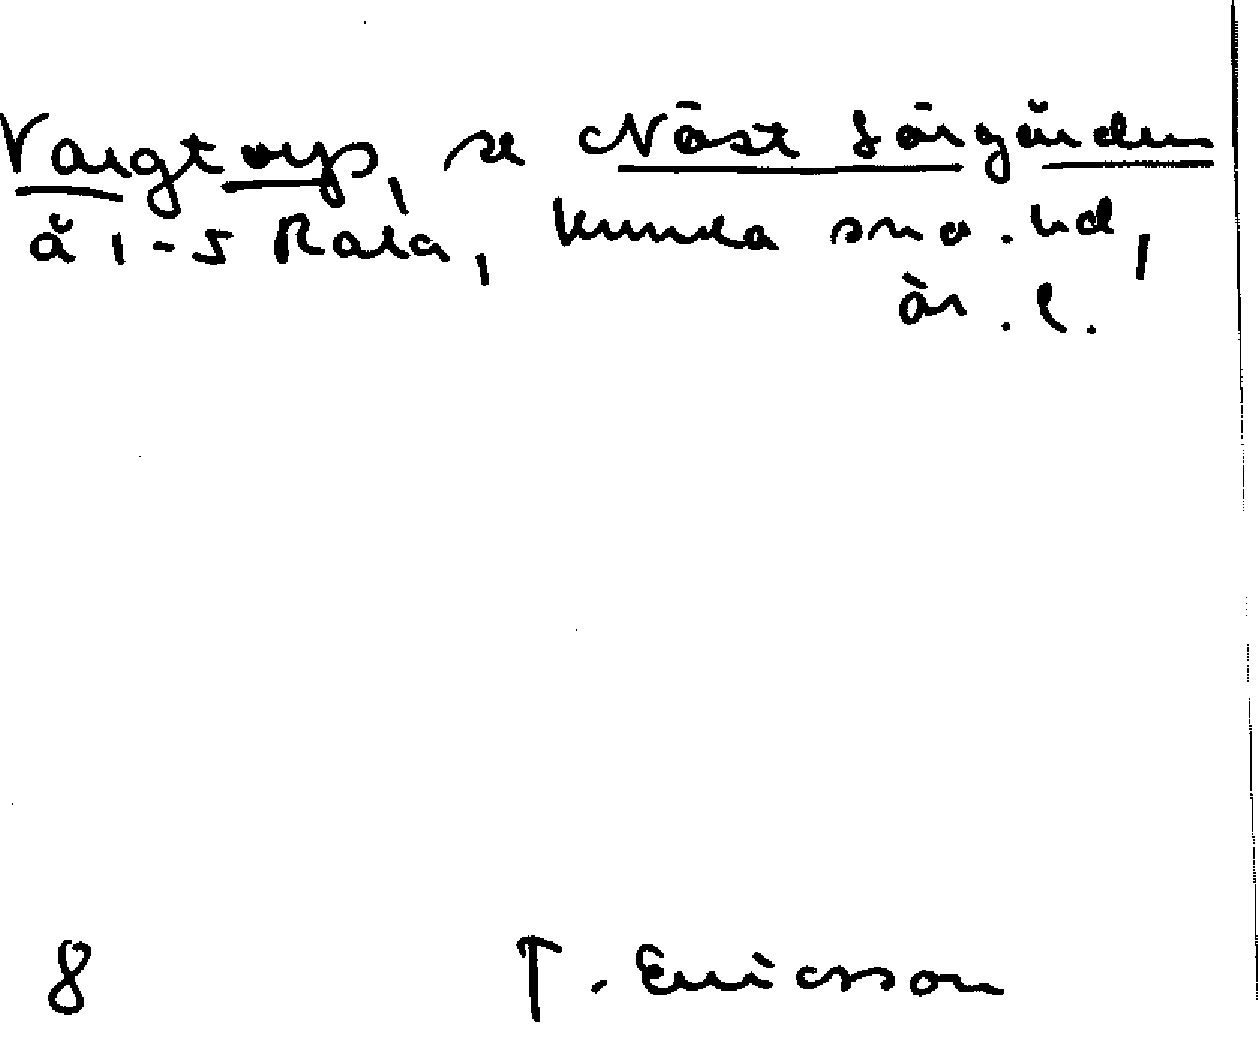 Vargtorp, se Näst Sörgården
å 1-5 Rala, Kumla sn o. hd,
Är. l.
8 T. Ericsson